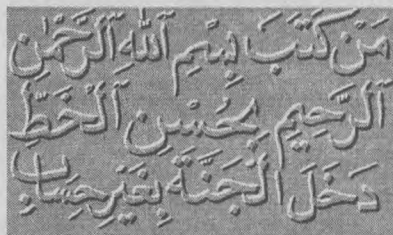 مَنْ كَتَبَ بِسْمِ اللهِ الرَّحْمٰنِ
الرَّحِيمِ بِحُسْنِ الْخَطِّ
دَخَلَ الْجَنَّةَ بِغَيْرِ حِسَابٍ